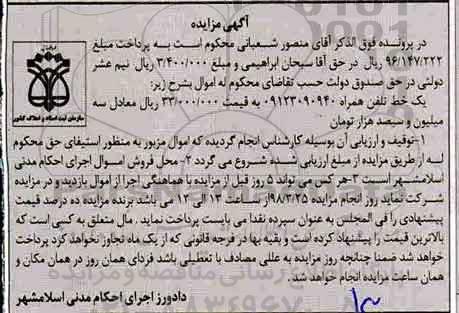 آگهی مزایده
در پرونـده فوق الذکر آقای منصور شـعبانی محکوم اسـت بـه پرداخت مبلغ
۹۶/۱۴۷/۲۲۲ ریال در حق آقا سبحان ابراهیمی و مبلغ ۳/۴۰۰/۰۰۰ ریال نیم عشر
دولتی در حق صندوق دولت حسب تقاضای محکوم له اموال بشرح زیر:
یک خط تلفن همراه ۰۹۱۲۳۰۹۰۹۴۰ به قیمت ۳۳/۰۰۰/۰۰۰ ریال معادل سه
میلیون و سیصد هزار تومان
۱-توقیف و ارزیابی آن بوسیله کارشناس انجام گردیده که اموال مزبور به منظور استیفای حق محکوم
لـه از طریق مزایده از مبلغ ارزیابی شـده شـروع می گردد ۲- محل فروش امـوال اجرای احکام مدنی
اسلامشهر است ۳-هر کس می تواند ۵ روز قبل از مزایده با هماهنگی اجرا از اموال بازدید و در مزایده
شرکت نماید روز انجام مزایده ۹۸/۳/۲۵از ساعت ۱۳ الی ۱۴ می باشد برنده مزایده ده درصد قیمت
پیشنهادی را فی المجلس به عنوان سپرده نقدا می بایست پرداخت نماید . مال متعلق به کسی است که
بالاترین قیمت را پیشنهاد کرده است و بقیه بها در فرجه قانونی که از یک ماه تجاوز نخواهد کرد پرداخت
خواهد شد ضمنا چنانچه روز مزایده به عللی مصادف با تعطیلی باشد فردای همان روز در همان مکان و
همان ساعت مزایده انجام خواهد شد .
دادورز اجرای احکام مدنی اسلامشهر
سازمان ثبت اسناد و املاک کشور